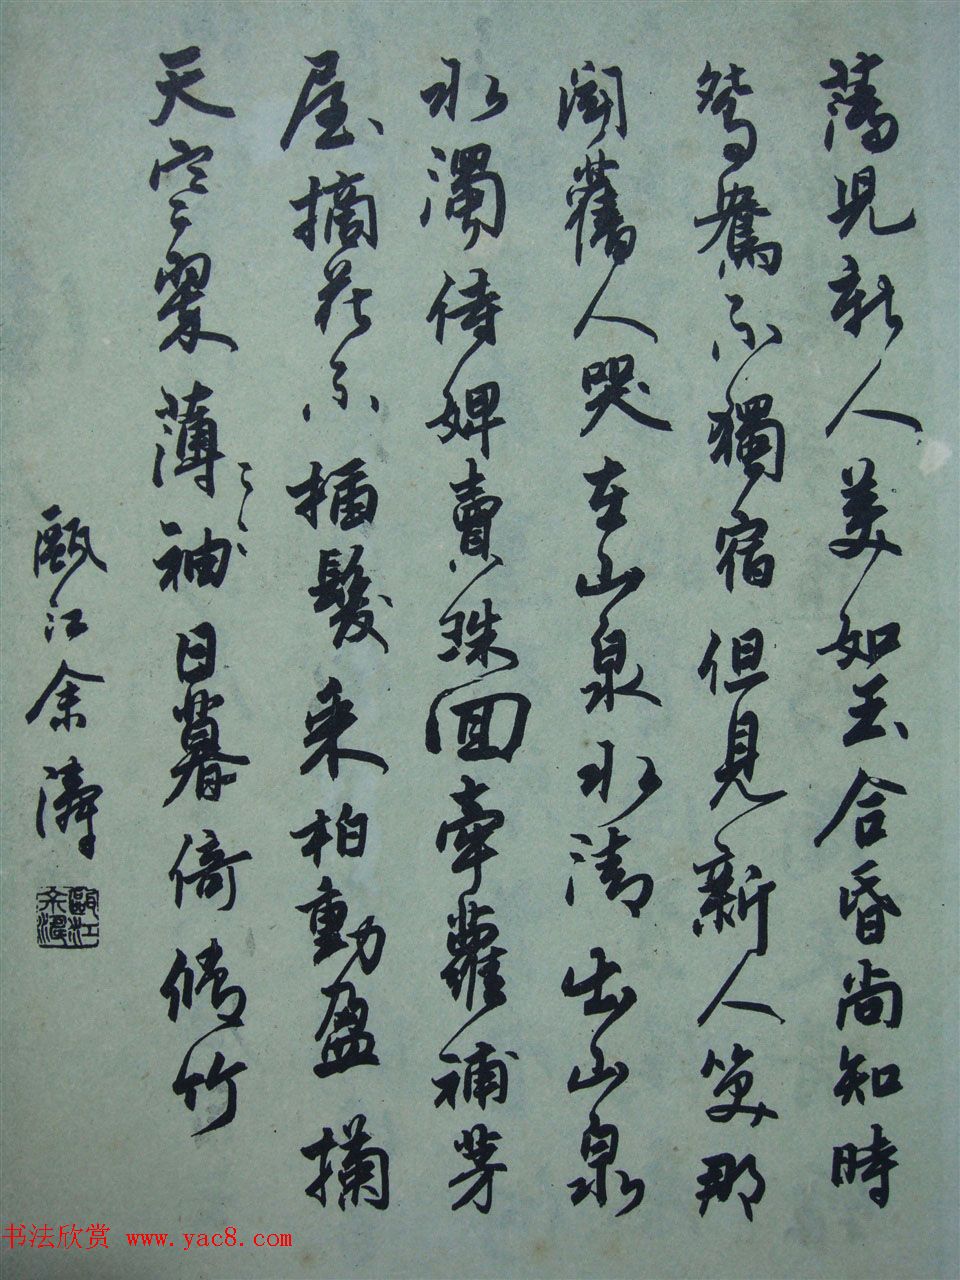 薄兒新人美如玉合昏尚知時
鴛鴦不獨宿但見新人笑那
聞舊人哭在山泉水清出山泉
水濁侍婢賣珠回牽蘿補茅
屋摘花不插髮采柏動盈掬
天寒翠薄袖日暮倚脩竹
甌江余濤
甌江余濤
书法欣赏 www.yac8.com